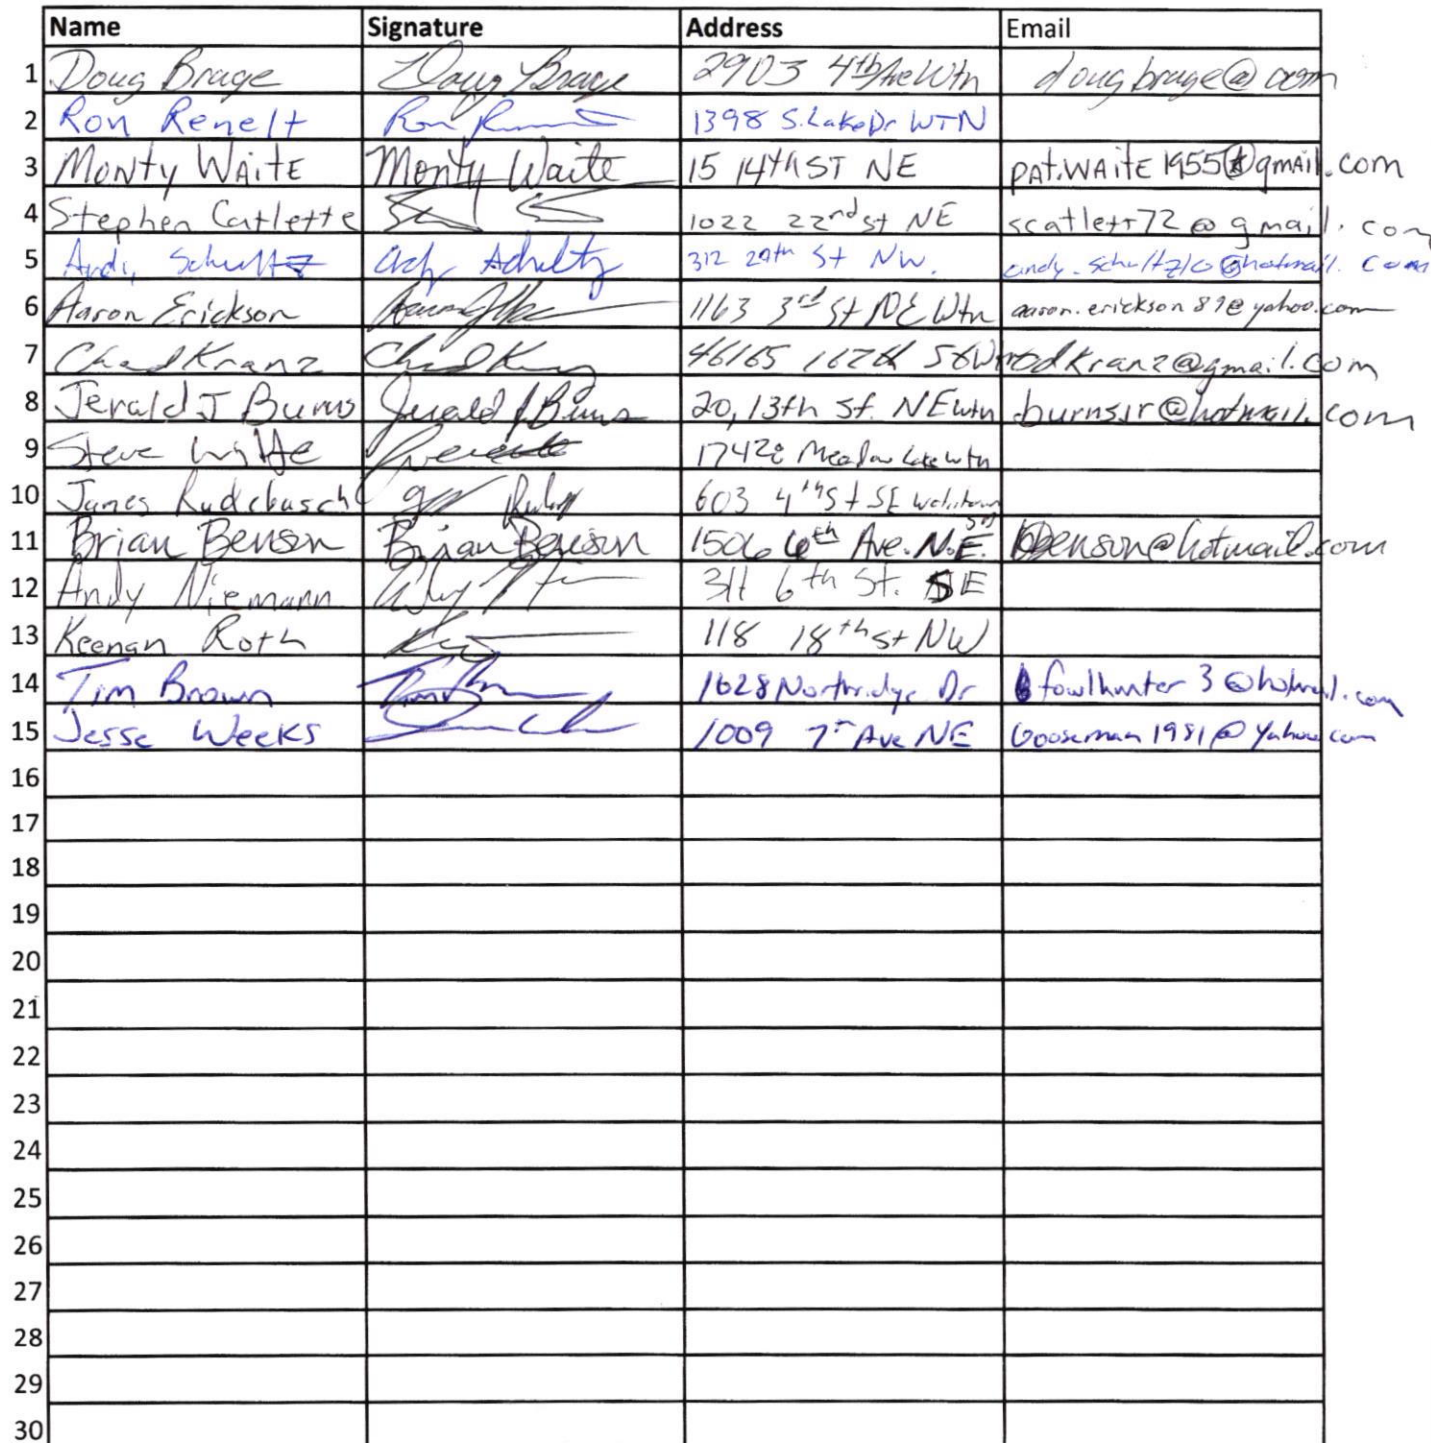 Name Signature Address Email
1 Doug Brage Doug Brage 2903 4th Ave Wtn dougbrage@
2 Ron Renelt Ron 1398 S. Lake Dr WTN
3 Monty Waite Monty Waite 15 14th ST NE pat.waite1955@gmail.com
4 Stephen Catlette 1022 22nd St NE scatlett72@gmail.com
5 Andy Schultz Andy Schultz 312 29th St NW. andy.schultz10@hotmail.com
6 Aaron Erickson 1163 3rd St NE Wtn aaron.erickson89@yahoo.com
7 Chad Kranz Chad 46165 162nd St
8 Jerald J Burns Jerald J Burns 20, 13th St. NE wtn burnsjr@hotmail.com
9 Steve 17428 Meadow Lake wtn
10 James Rudebusch 603 4th St SE
11 Brian Benson Brian Benson 1506 6th Ave. N.E. bbenson@hotmail.com
12 Andy Niemann 311 6th St. SE
13 Keenan Roth 118 18th St NW
14 Tim Brown 1628 Northridge Dr fowlhunter3@hotmail.com
15 Jesse Weeks 1009 7th Ave NE Gooseman1981@yahoo.com
16
17
18
19
20
21
22
23
24
25
26
27
28
29
30